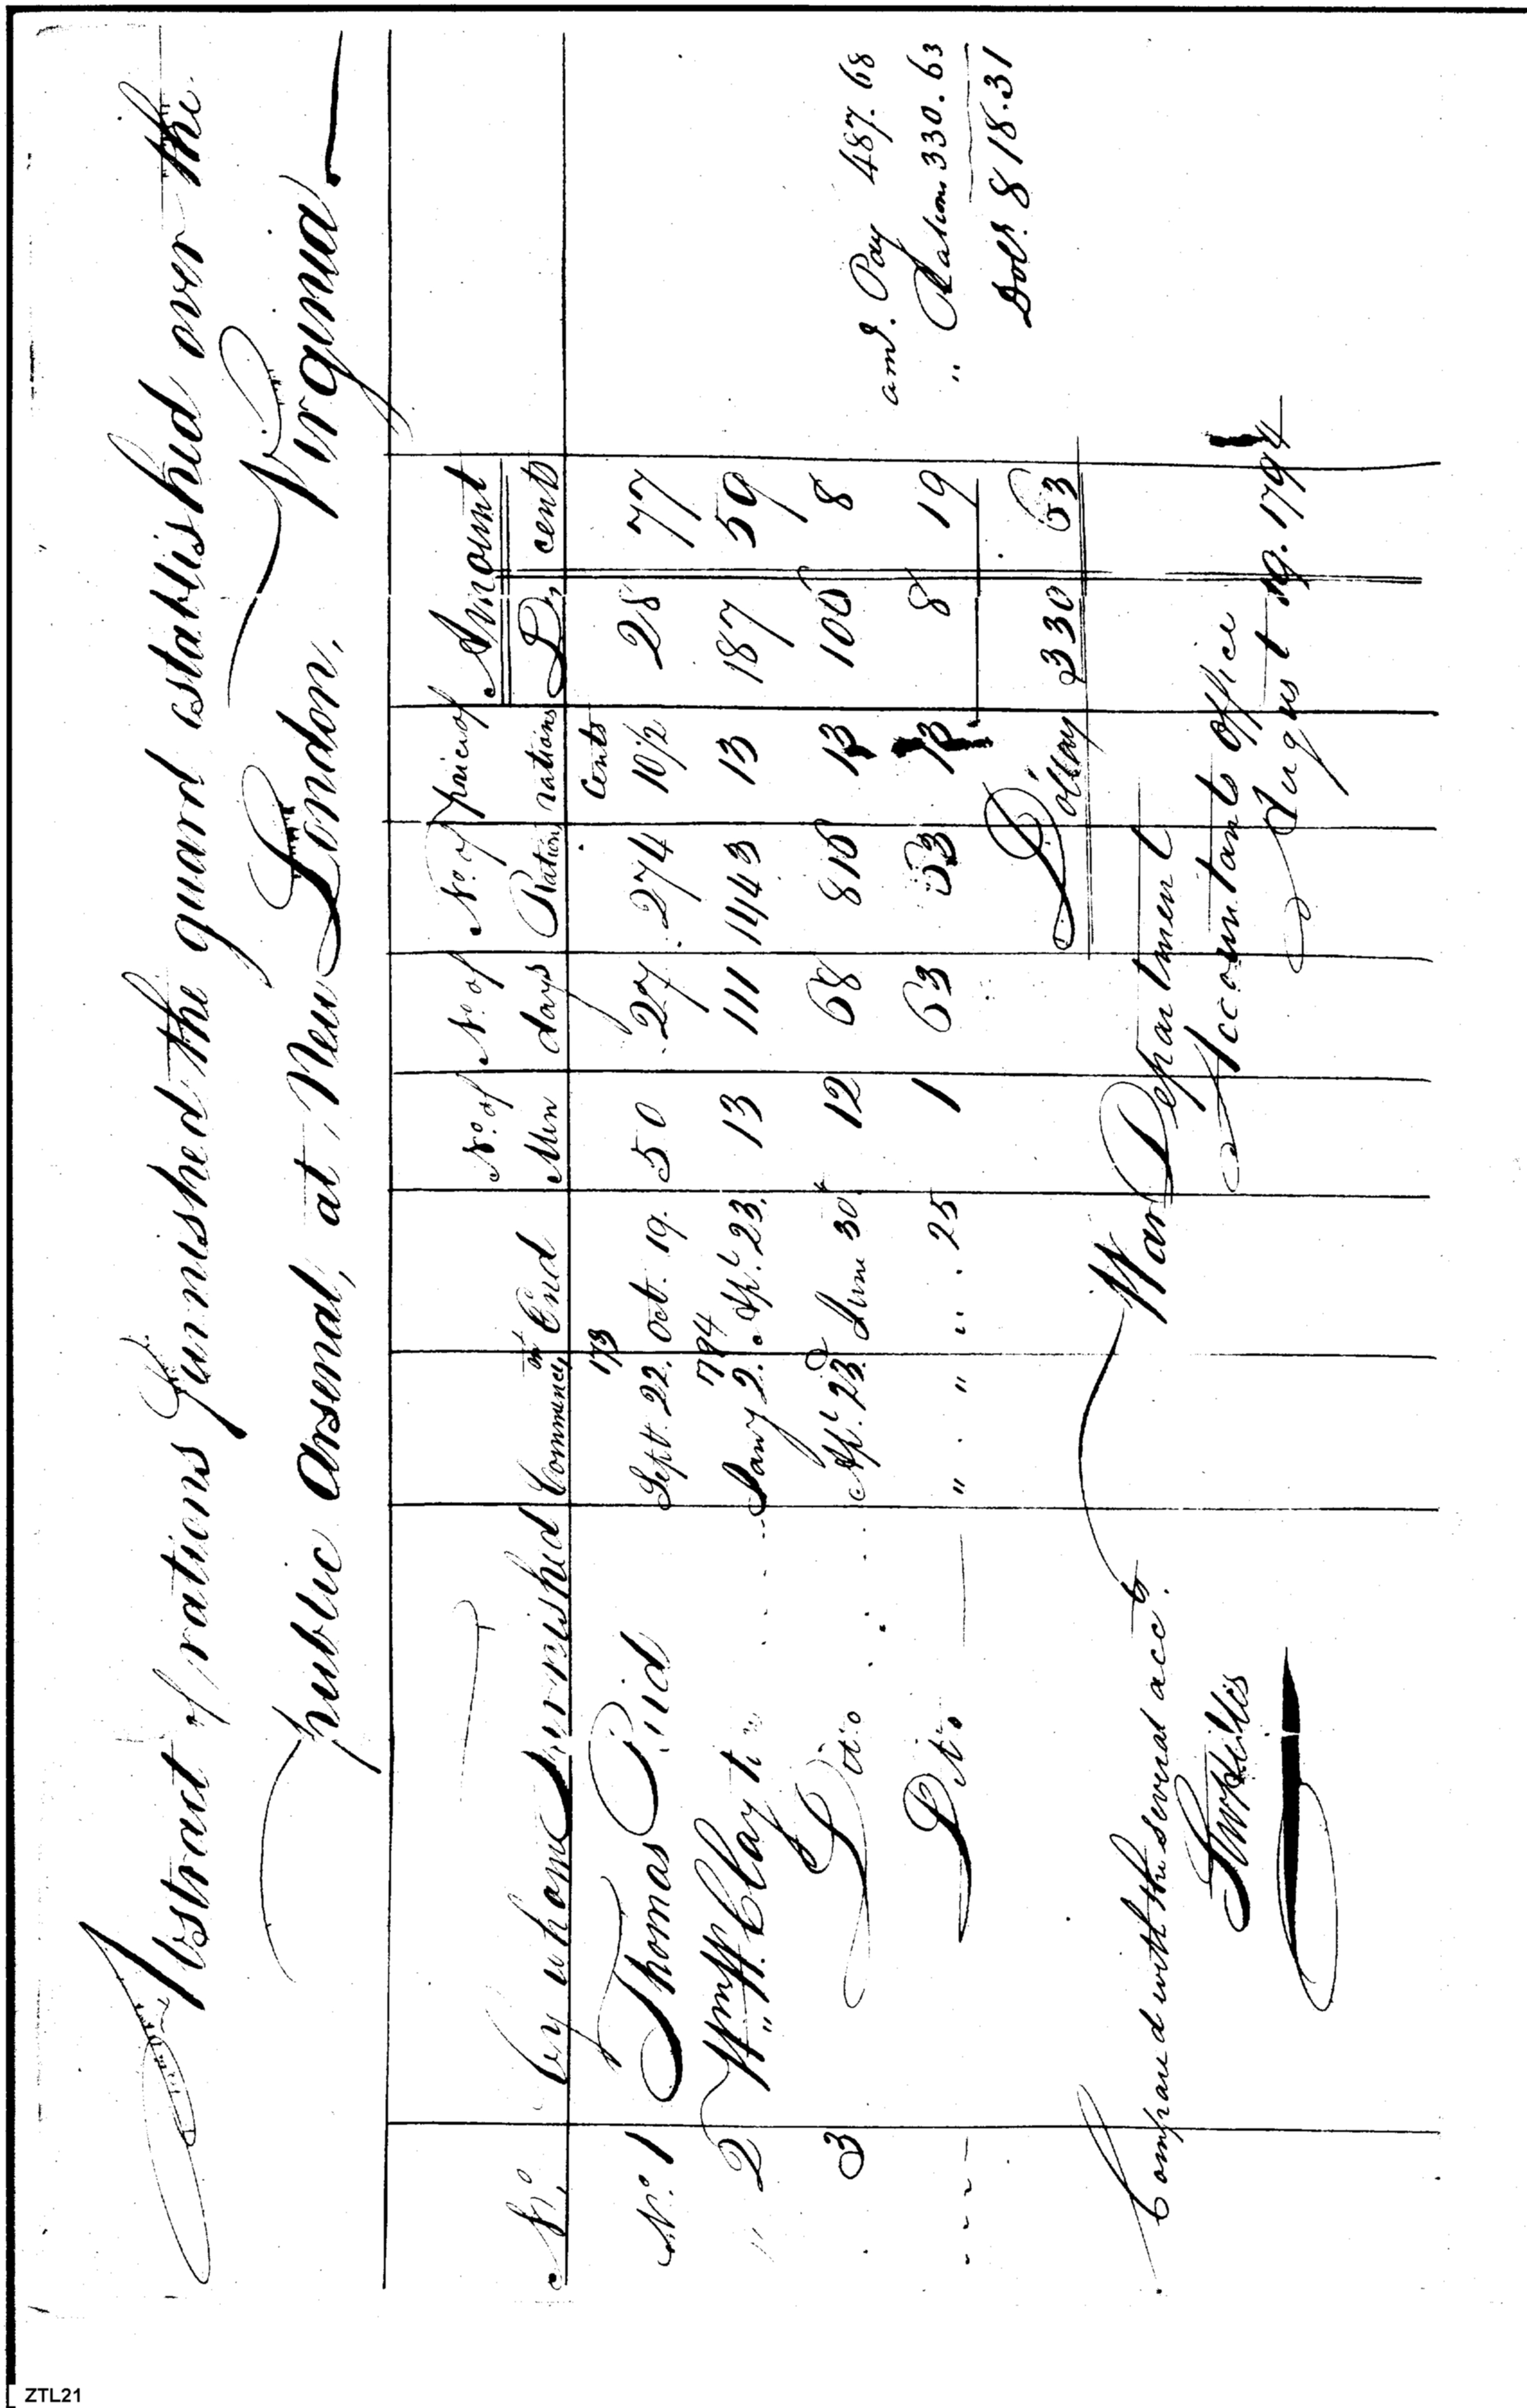 Abstract of rations Furnished the guard established over the
public Arsenal, at New London, Virginia
No. by whom Furnished Commencemt End No. of Men No. of days No. of Rations price of rations Amount Ds cents
Cents
No. 1 Thomas Reid Sept. 22. Oct. 19. 50 27 274 10½ 28 77
1794
" 2 Wm H. Clayton Jany 2. Apl. 23. 13 111 1443 13 187 59
3 Ditto Apl. 23d June 30th 12 68 816 13 106 8
Ditto " " " 25 1 63 63 13 8 19
Dollars 330 63
amt. Pay 487.68
" Rations 330.63
Dolls. 818.31
War Department
Accountants office
August 19. 1794
Compared with the several accts.
ZTL21